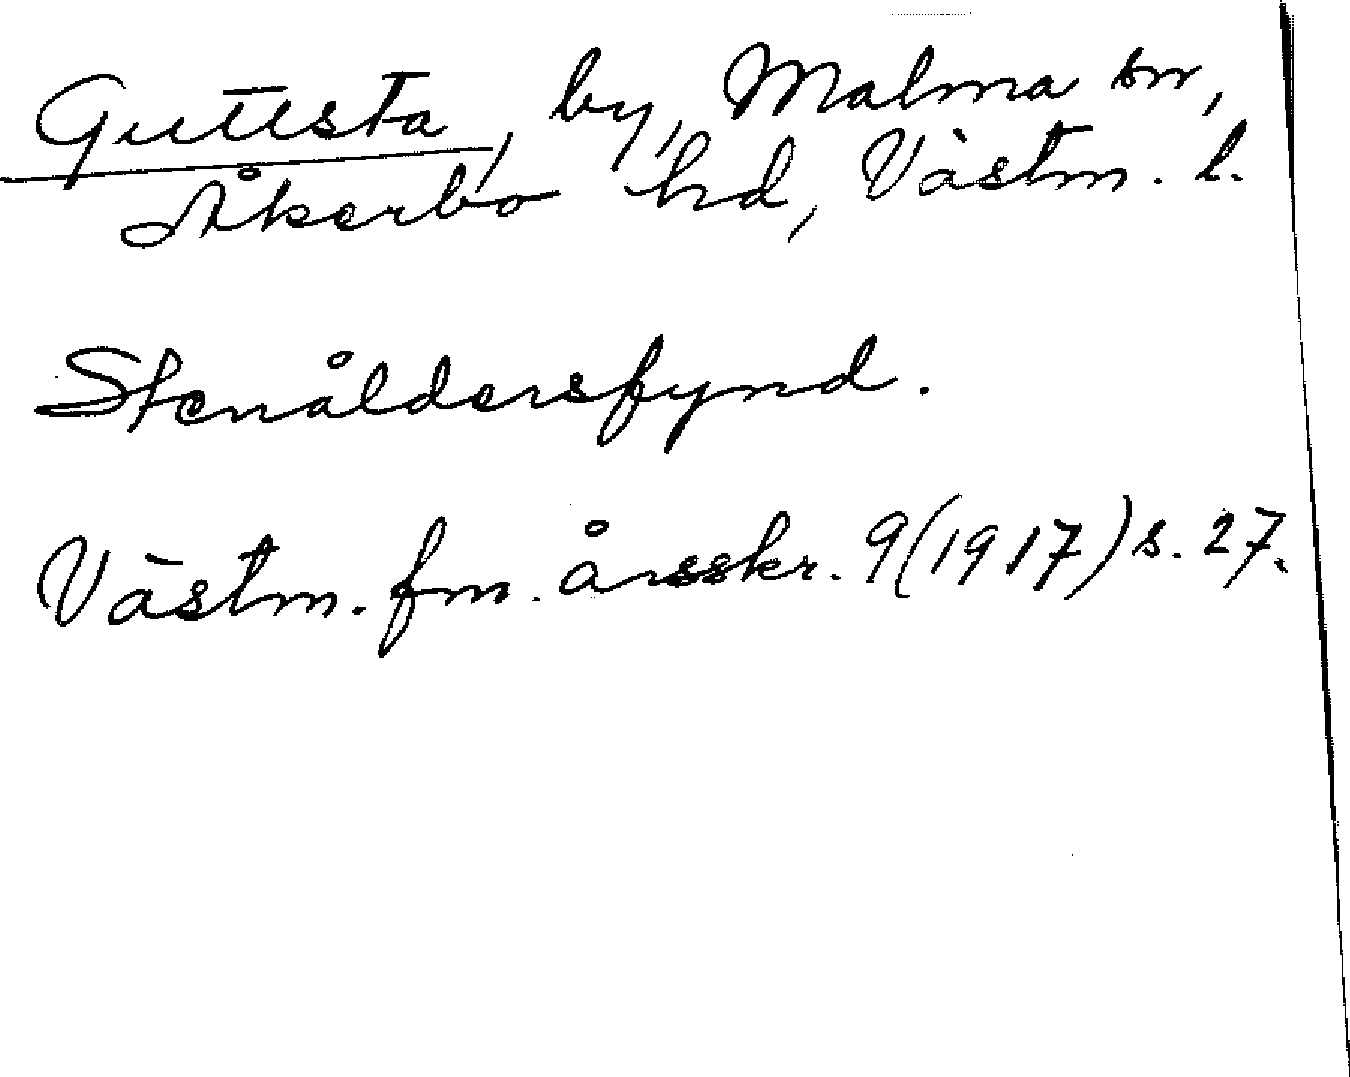 Guttsta, by, Malma sn,
Åkerbo hd, Västm. l.
Stenåldersfynd.
Västm. fm. årsskr. 9 (1917) s. 27.